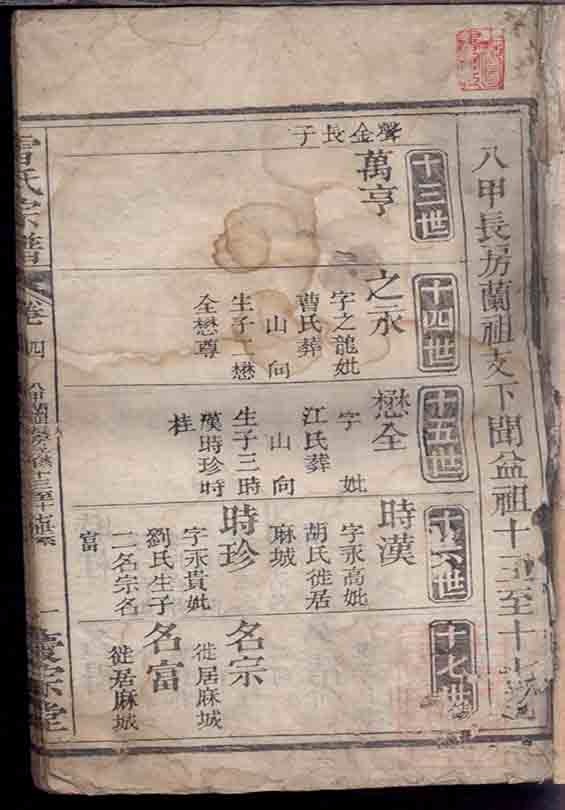 八甲長房蘭祖支下聞益祖十三至十七
十三世
聲金長子
萬亨
十四世
之永
字之龍妣
曹氏葬
山向
生子二懋
全懋尊
十五世
懋全
字 妣
江氏葬
山向
生子三時
漢時珍時
桂
十六世
時漢
字永高妣
胡氏徙居
麻城
時珍
字永貴妣
劉氏生子
二名宗名
富
十七世
名宗
徙居麻城
名富
徙居麻城
氏宗譜
卷四
一
宗堂